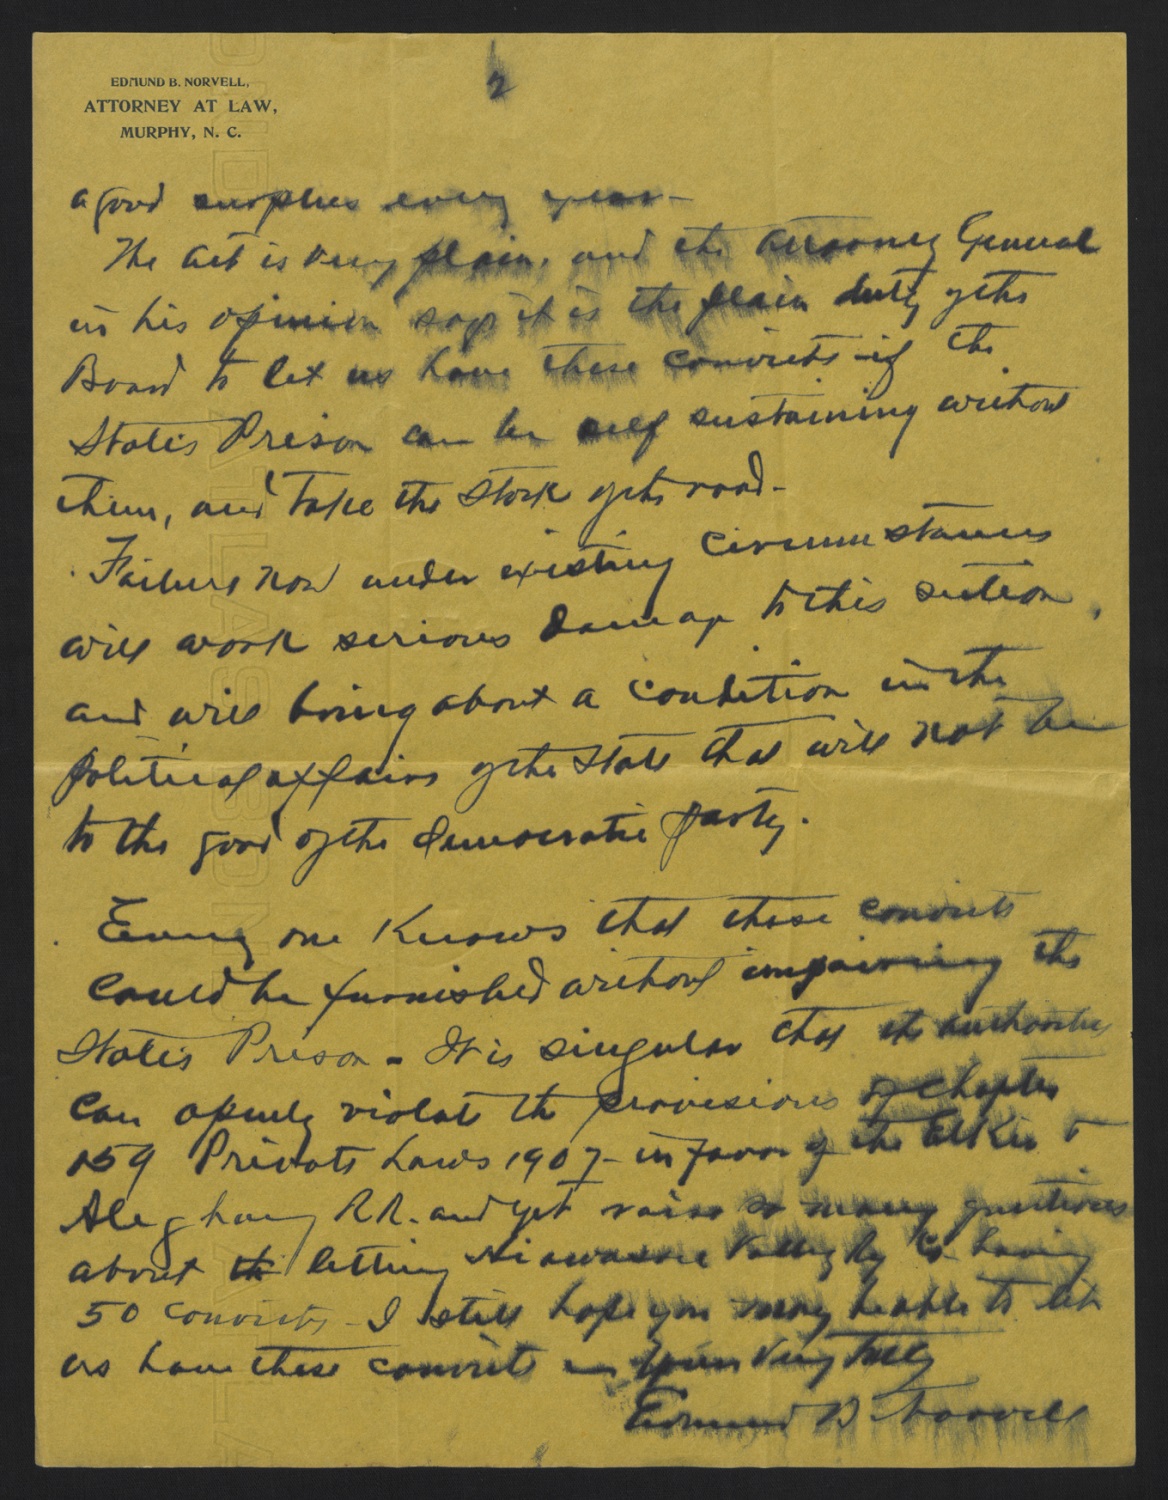 2
EDMUND B. NORVELL,
ATTORNEY AT LAW,
MURPHY, N. C.
a good surplus every year -
The act is very plain, and the Attorney General
in his opinion says it is the plain duty of the
Board to let us have these convicts if the
States Prison can be self sustaining without
them, and take the stock of the road -
Failure now under existing circumstances
will work serious damage to this section,
and will bring about a condition in the
political affairs of the State that will not be
to the good of the democratic party.
Every one knows that these convicts
could be furnished without impairing the
States Prison - It is singular that the authorities
can openly violate the provisions of Chapter
159 Private Laws 1907 - in favor of the Elkin &
Aleghany R.R. and yet raise so many questions
about letting Hiawassee Valley Ry Co. having
50 convicts - I still hope you may be able to let
us have these convicts - Yours Very Truly
Edmund B. Norvell